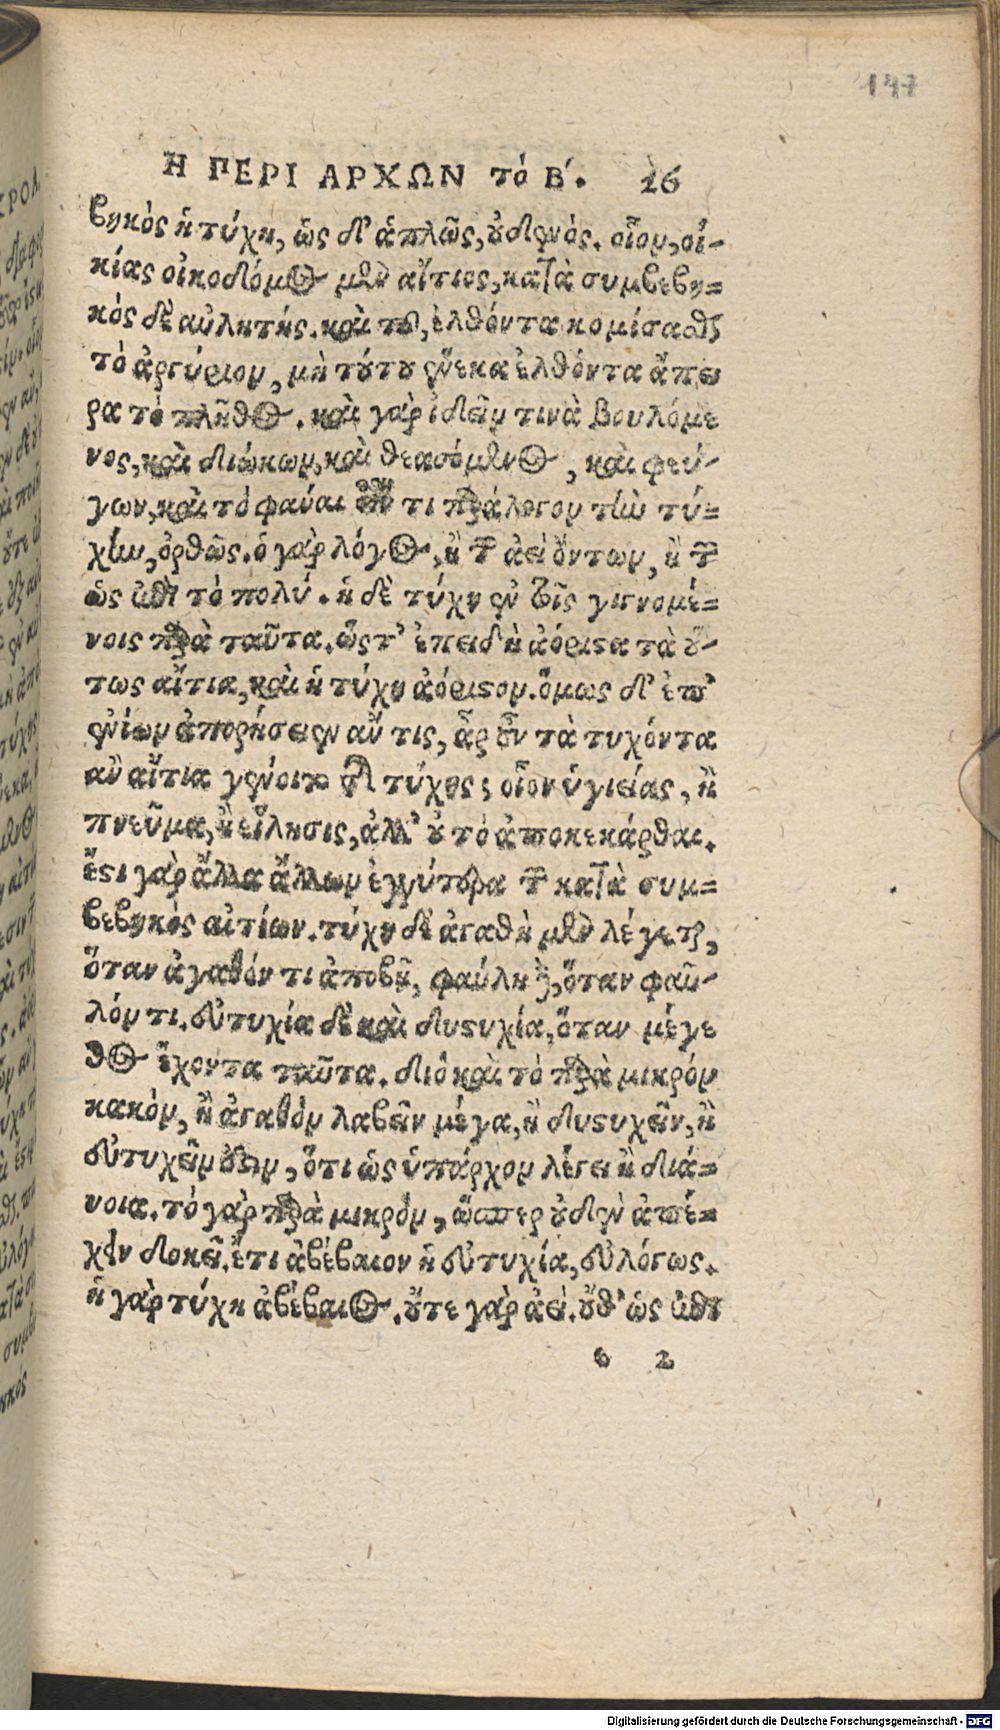 147
Η ΠΕΡΙ ΑΡΧΩΝ τό Β´. 26
βηκὸς ἡ τύχη, ὡς δ' ἁπλῶς, οὐδενός. οἷον, οἰ-
κίας οἰκοδόμος μὲν αἴτιος, κατὰ συμβεβη=
κὸς δὲ αὐλητής. καὶ τοῦ, ἐλθόντα κομίσασθαι
τὸ ἀργύριον, μὴ τούτου ἕνεκα ἐλθόντα ἄπει
ρα τὸ πλῆθος. καὶ γὰρ ἰδεῖν τινὰ βουλόμε
νος, καὶ διώκων, καὶ θεασόμενος, καὶ φεύ-
γων, καὶ τὸ φάναι εἶναί τι παράλογον τὴν τύ=
χην, ὀρθῶς. ὁ γὰρ λόγος, ἢ τῶν ἀεὶ ὄντων, ἢ τῶν
ὡς ἐπὶ τὸ πολύ. ἡ δὲ τύχη ἐν τοῖς γιγνομέ=
νοις παρὰ ταῦτα. ὥστ' ἐπειδὴ ἀόριστα τὰ οὕ-
τως αἴτια, καὶ ἡ τύχη ἀόριστον. ὅμως δ' ἐπ'
ἐνίων ἀπορήσειεν ἄν τις, ἆρ οὖν τὰ τυχόντα
ἂν αἴτια γένοιτο τῆς τύχης; οἷον ὑγιείας, ἢ
πνεῦμα, ἢ εἵλησις, ἀλλ' οὐ τὸ ἀποκεκάρθαι.
ἔστι γὰρ ἄλλα ἄλλων ἐγγύτερα τῶν κατὰ συμ=
βεβηκὸς αἰτίων. τύχη δὲ ἀγαθὴ μὲν λέγεται,
ὅταν ἀγαθόν τι ἀποβῇ, φαύλη δὲ, ὅταν φαῦ-
λόν τι. εὐτυχία δὲ καὶ δυστυχία, ὅταν μέγε
θος ἔχοντα ταῦτα. διὸ καὶ τὸ παρὰ μικρὸν
κακὸν, ἢ ἀγαθὸν λαβεῖν μέγα, ἢ δυστυχεῖν, ἢ
εὐτυχεῖν ἐστιν, ὅτι ὡς ὑπάρχον λέγει ἡ διά=
νοια. τὸ γὰρ παρὰ μικρὸν, ὥσπερ οὐδὲν ἀπέ=
χειν δοκεῖ. ἔτι ἀβέβαιον ἡ εὐτυχία, εὐλόγως.
ἡ γὰρ τύχη ἀβέβαιος. οὔτε γὰρ ἀεὶ. οὔθ' ὡς ἐπὶ
c 2
Digitalisierung gefördert durch die Deutsche Forschungsgemeinschaft - DFG